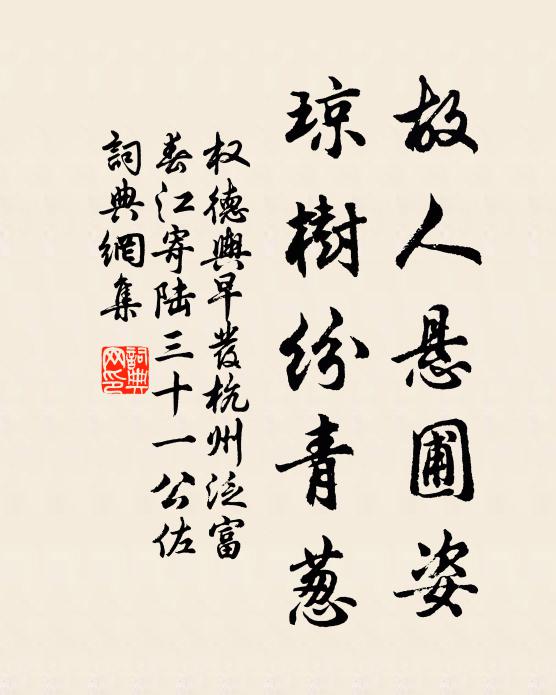 故人悬圃姿
琼樹纷青葱
权德舆早發杭州泛富
春江寄陆三十一公佐
詞典網集
詞典网印